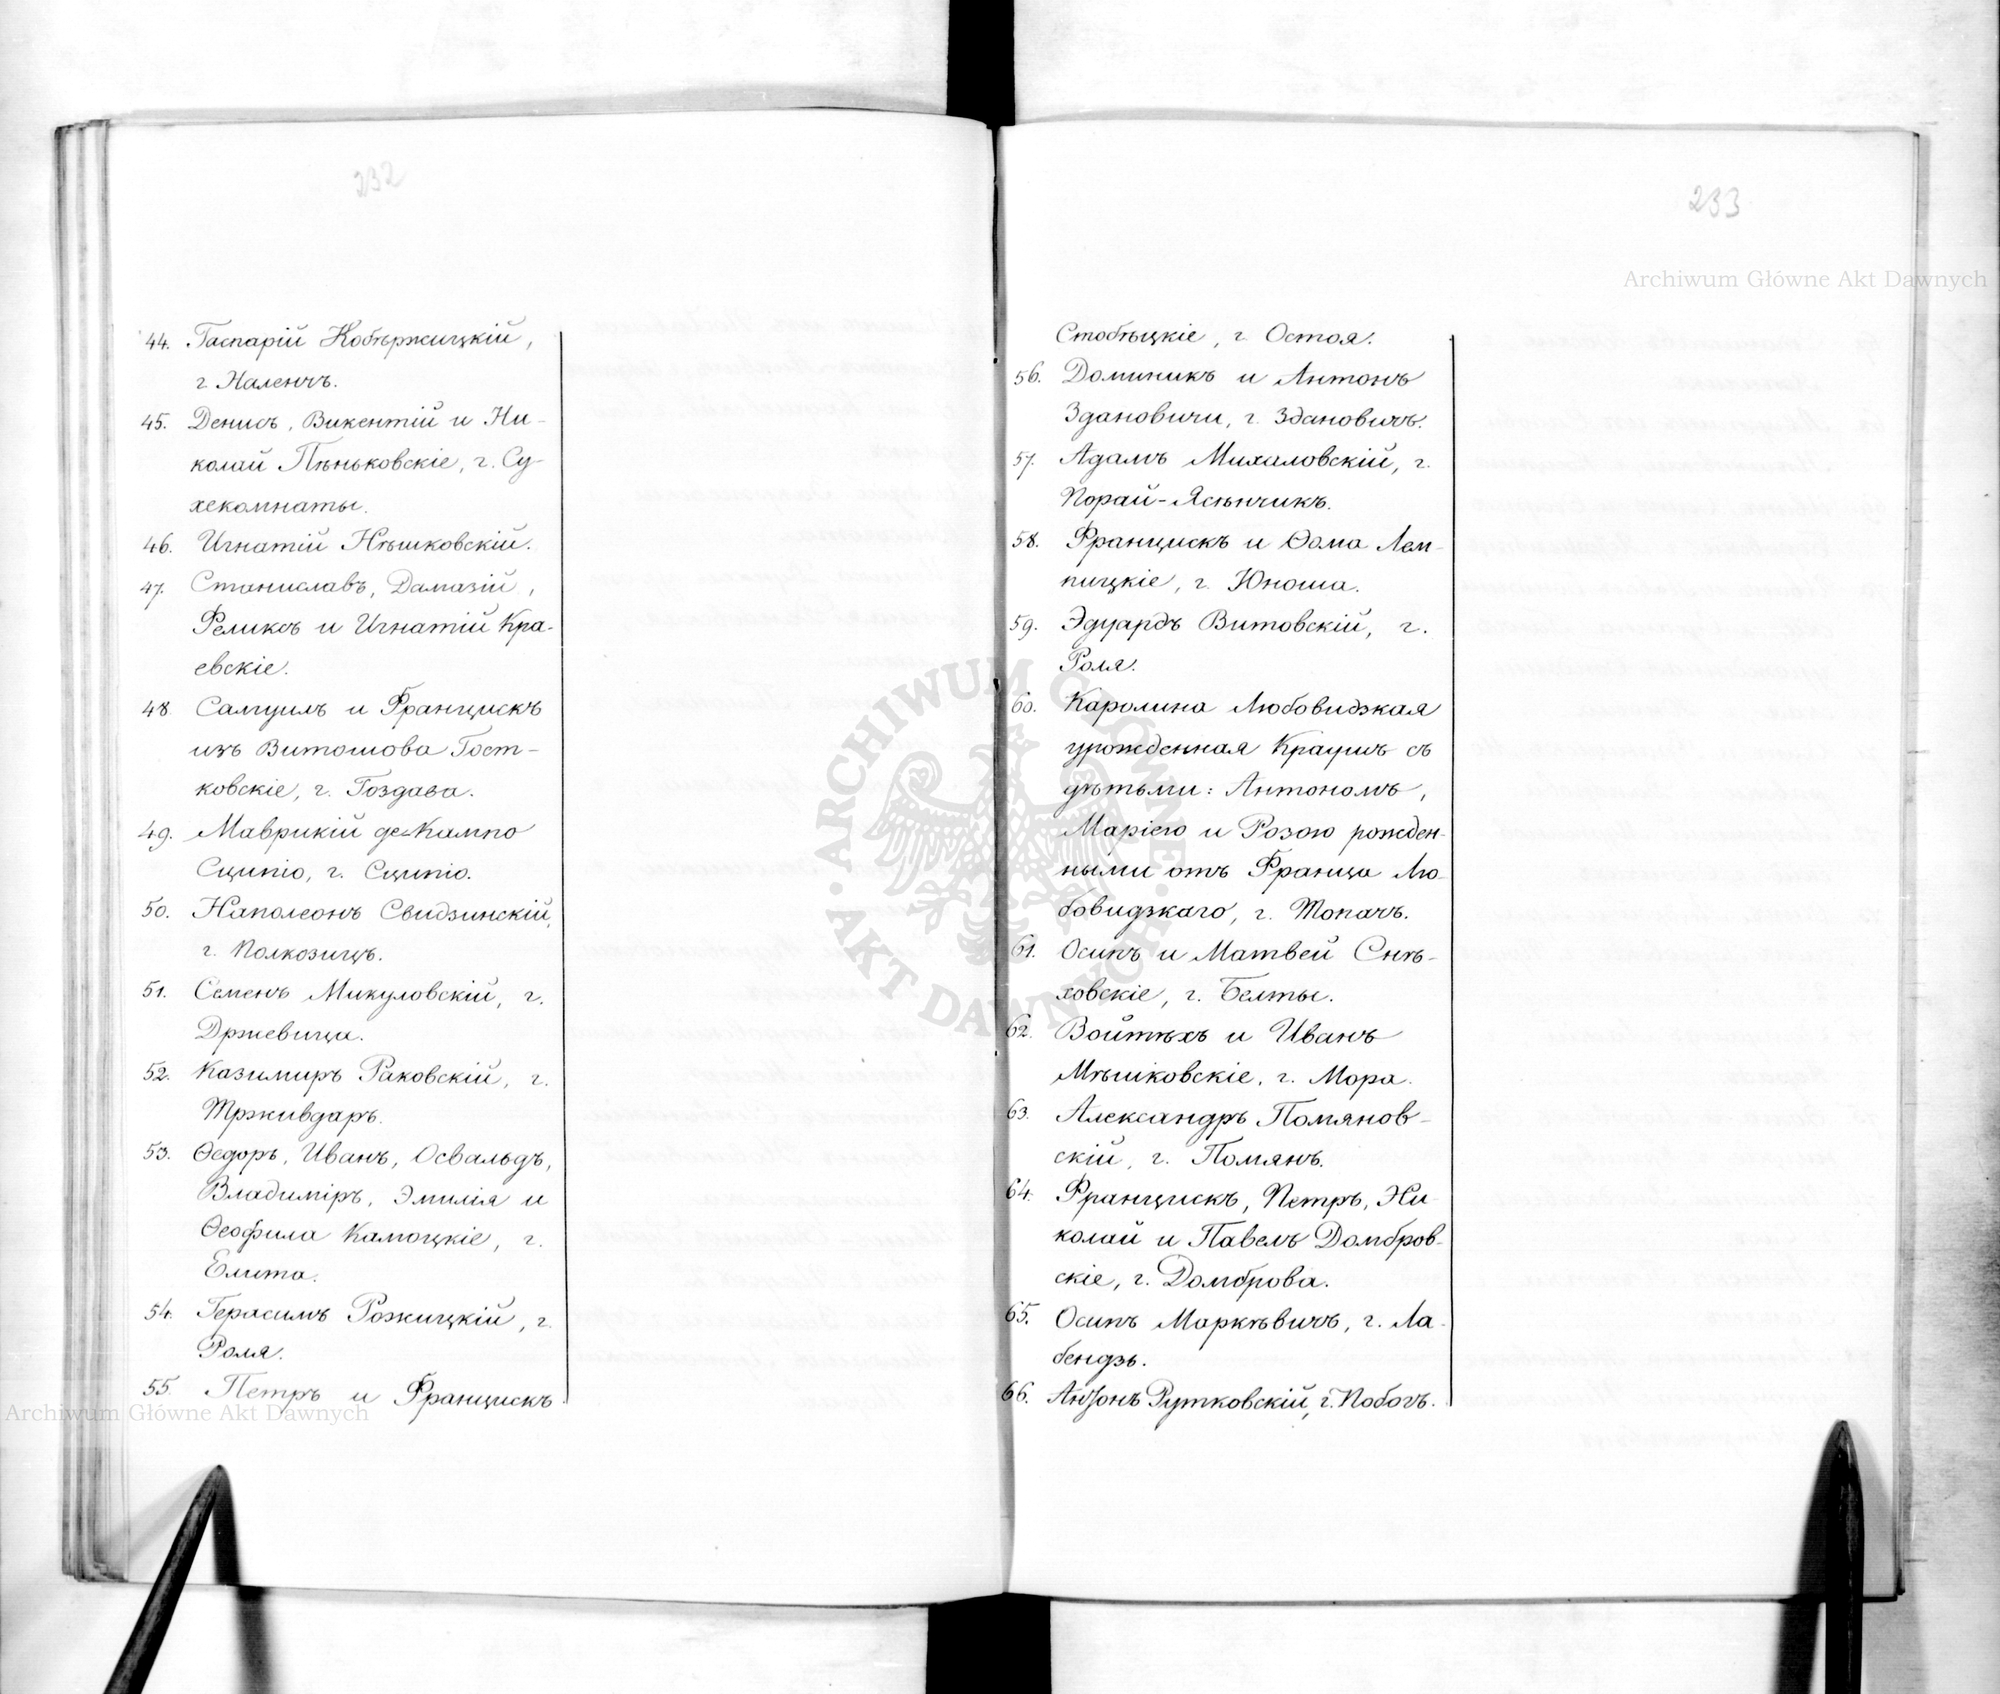 232
44. Гаспарій Кобѣржицкій,
г. Наленчъ.
45. Денисъ, Викентій и Ни-
колай Пѣньковскіе, г. Су-
хекомнаты.
46. Игнатій Нѣшковскій.
47. Станиславъ, Дамазій,
Феликсъ и Игнатій Кра-
евскіе.
48. Самуилъ и Францискъ
изъ Витошова Гост-
ковскіе, г. Гоздава.
49. Маврикій де-Кампо
Сципіо, г. Сципіо.
50. Наполеонъ Свидзинскій,
г. Полкозицъ.
51. Семенъ Микуловскій, г.
Држевица.
52. Казимиръ Раковскій, г.
Трживдаръ.
53. Ѳедоръ, Иванъ, Освальдъ,
Владиміръ, Эмилія и
Ѳеофила Камоцкіе, г.
Елита.
54. Герасимъ Рожицкій, г.
Роля.
55. Петръ и Францискъ
Archiwum Główne Akt Dawnych
233
Archiwum Główne Akt Dawnych
Стобѣцкіе, г. Остоя.
56. Доминикъ и Антонъ
Здановичи, г. Здановичъ.
57. Адамъ Михаловскій, г.
Порай-Ясѣнчикъ.
58. Францискъ и Ѳома Лем-
пицкіе, г. Юноша.
59. Эдуардъ Витовскій, г.
Роля.
60. Каролина Любовидзкая
урожденная Краушъ съ
дѣтьми: Антономъ,
Маріею и Розою рожден-
ными отъ Франца Лю-
бовидзкаго, г. Топачъ.
61. Осипъ и Матвей Снѣ-
ховскіе, г. Белты.
62. Войтѣхъ и Иванъ
Мѣшковскіе, г. Мора.
63. Александръ Помянов-
скій, г. Помянъ.
64. Францискъ, Петръ, Ни-
колай и Павелъ Домбров-
скіе, г. Домброва.
65. Осипъ Маркѣвичъ, г. Ла-
бендзь.
66. Антонъ Рутковскій, г. Побогъ.
ARCHIWUM GŁÓWNE
AKT DAWNYCH